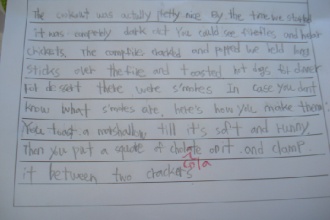 The cookout was actually pretty nice By the time we started
it was completely dark out You could see fireflies, and hear
crickets. The campfires crackled and popped we held long
sticks over the fire and toasted hot dogs for dinner
For dessert there were s'mores In case you don't
know what s'mores are, here's how you make them
You toast a marshmallow till it's soft and runny,
Then you put a square of cholate on it. and clamp
cola
it between two crackers